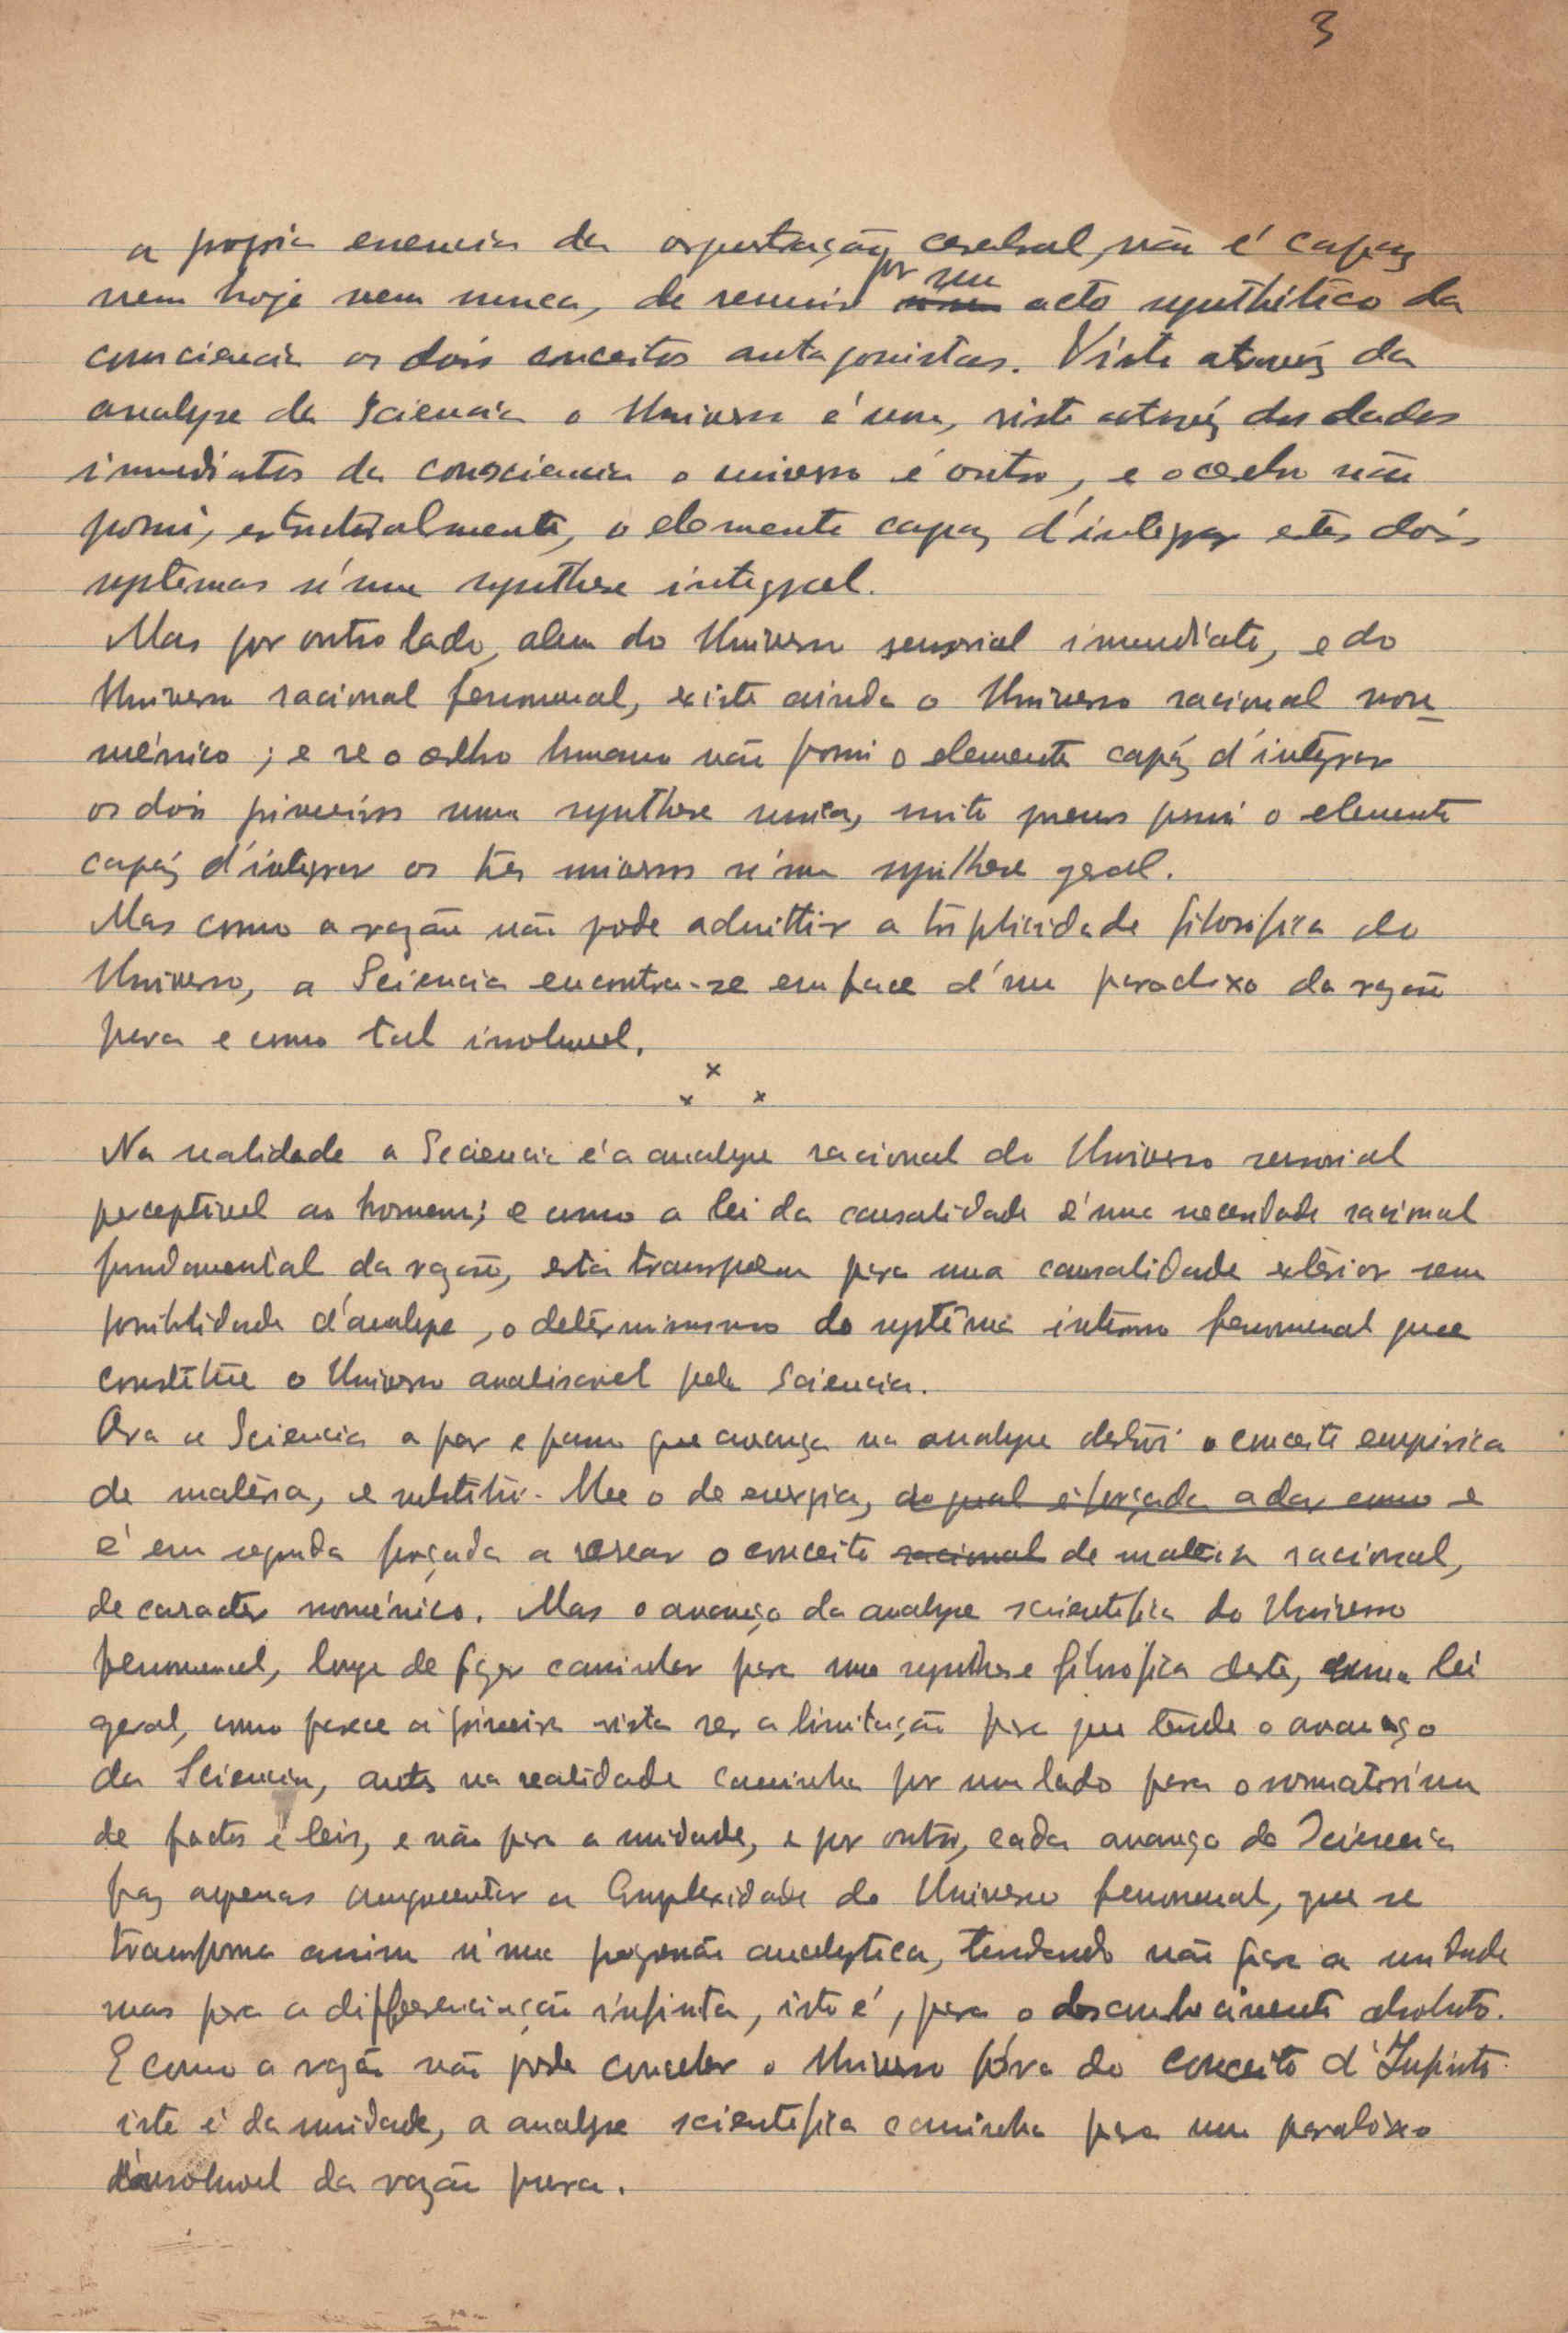 3
a propria essencia da organização cerebral, não é capaz
nem hoje nem nunca, de reunir por um acto synthético da
consciencia os dois conceitos antagonistas. Visto através da
analyse da Sciencia o Universo é um, visto através dos dados
immediatos da consciencia o universo é outro, e o cerebro não
possui, estructuralmente, o elemento capaz d'integrar estes dois
systemas n'uma synthese integral.
Mas por outro lado, alem do Universo sensorial immediato, e do
Universo racional fenomenal, existe ainda o Universo racional nou-
ménico; e se o cerebro humano não possui o elemento capáz d'integrar
os dois primeiros numa synthese unica, muito menos possui o elemento
capáz d'integrar os tres universos n'uma synthese geral.
Mas como a razão não pode admittir a triplicidade filosofica do
Universo, a Sciencia encontra-se em face d'um paradoxo da razão
pura e como tal insoluvel.
x
x x
Na realidade a Sciencia é a analyse racional do Universo sensorial
perceptivel ao homem; e como a lei da causalidade é uma necessidade racional
fundamental da razão, esta transpõem para uma causalidade exterior sem
possibilidade d'analyse, o determinismo do systêma interno fenomenal que
constitue o Universo analisavel pela Sciencia.
Ora a Sciencia a par e passo que avança na analyse destrói o conceito empirico
de matéria, e substitui-lhe o de energia, ao qual é forçada a dar como e
é em seguida forçada a recrear o conceito racional de materia racional,
de caracter nouménico. Mas o avanço da analyse scientifica do Universo
fenomenal, longe de fazer caminhar para uma synthese filosofica deste, uma lei
geral, como parece á primeira vista ser a limitação para que tende o avanço
da Sciencia, antes na realidade caminha por um lado para o somatorium
de factos e leis, e não para a unidade, e por outro, cada avanço da Sciencia
faz apenas augmentar a Complexidade do Universo fenomenal, que se
transforma assim n'uma progressão analytica, tendendo não para a unidade
mas para a differenciação infinita, isto é, para o desconhecimento absoluto.
E como a razão não pode conceber o Universo fóra do conceito d'Infinito
isto é da unidade, a analyse scientifica caminha para um paradoxo
insoluvel da razão pura.